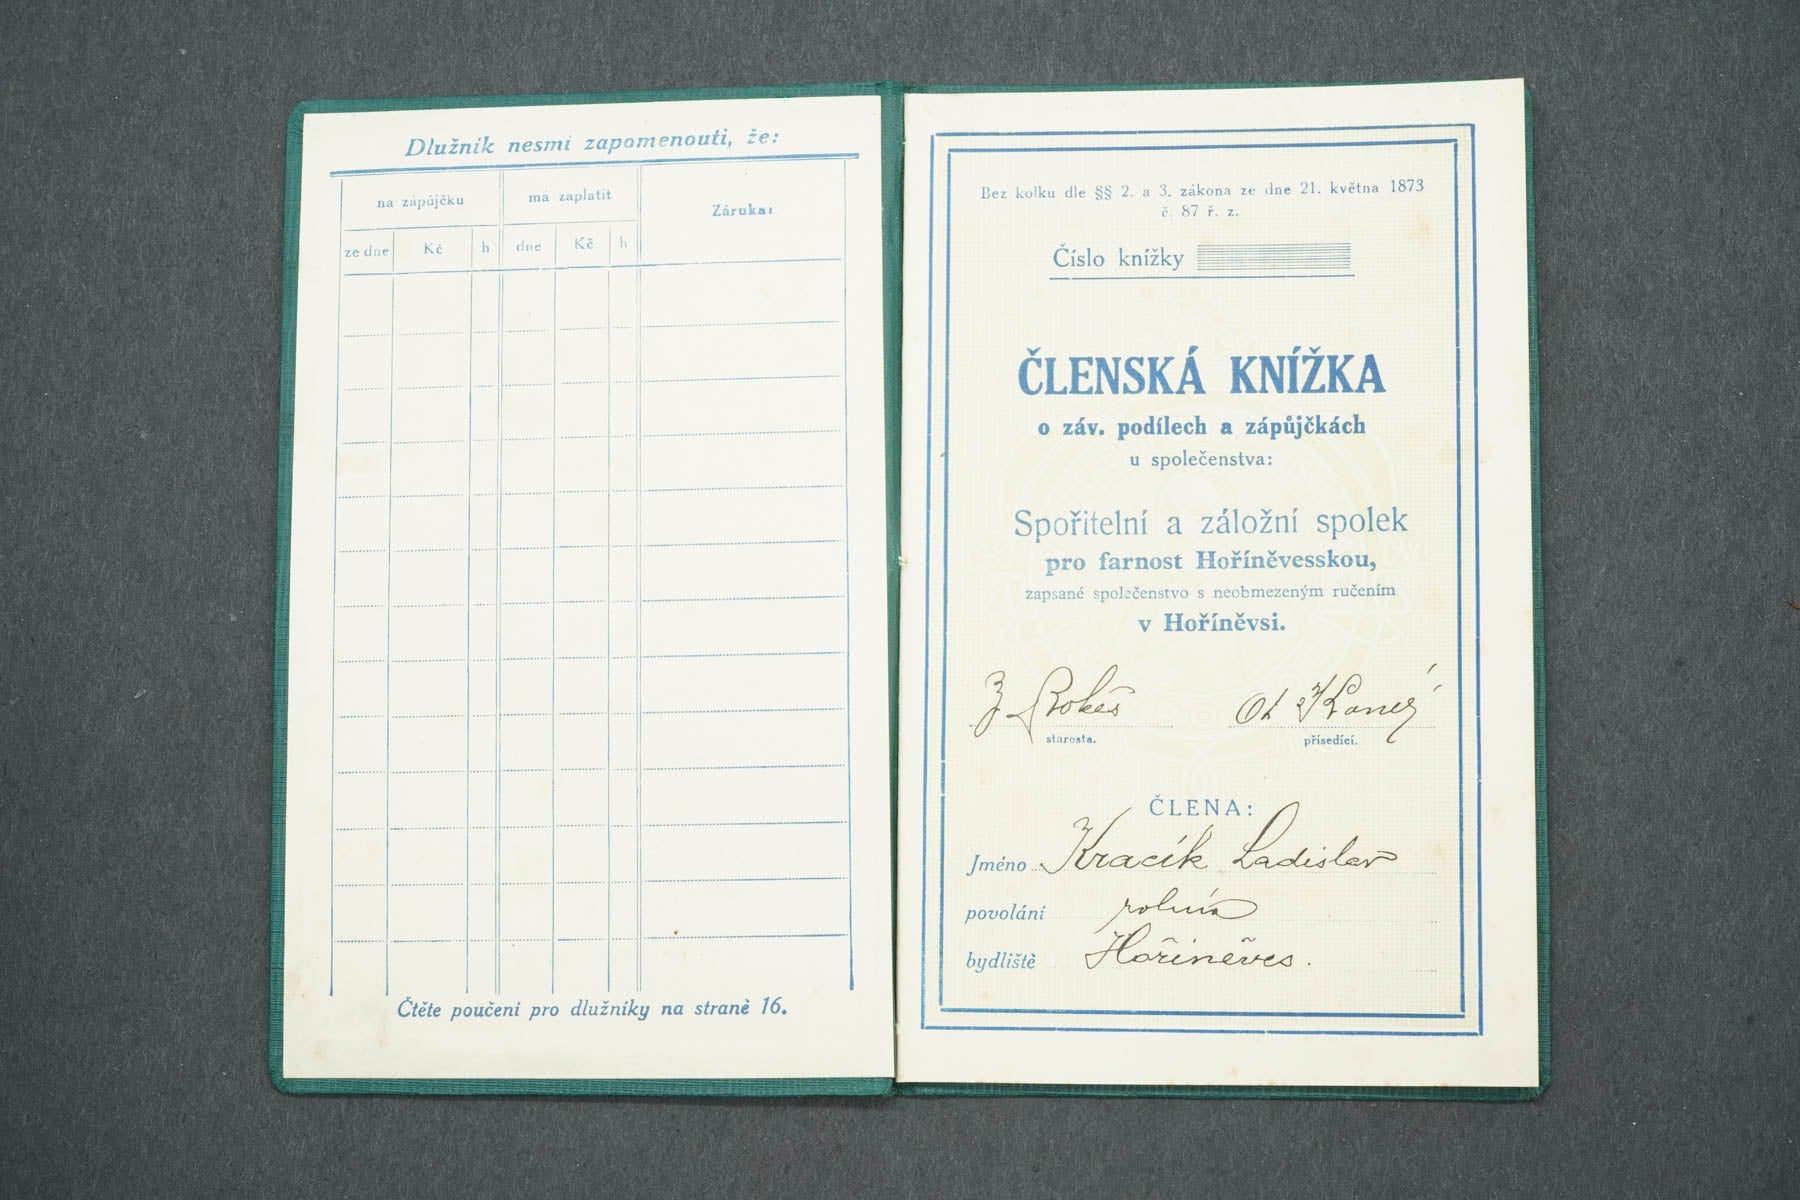 Dlužník nesmí zapomenouti, že:
na zápůjčku
má zaplatit
Záruka:
ze dne
Kč
h
dne
Kč
h
Čtěte poučení pro dlužníky na straně 16.
Bez kolku dle §§ 2. a 3. zákona ze dne 21. května 1873
č. 87 ř. z.
Číslo knížky
ČLENSKÁ KNÍŽKA
o záv. podílech a zápůjčkách
u společenstva:
Spořitelní a záložní spolek
pro farnost Hoříněvesskou,
zapsané společenstvo s neobmezeným ručením
v Hoříněvsi.
starosta.
přísedící.
ČLENA:
Jméno Kracík Ladislav
povolání
bydliště Hořiněves.